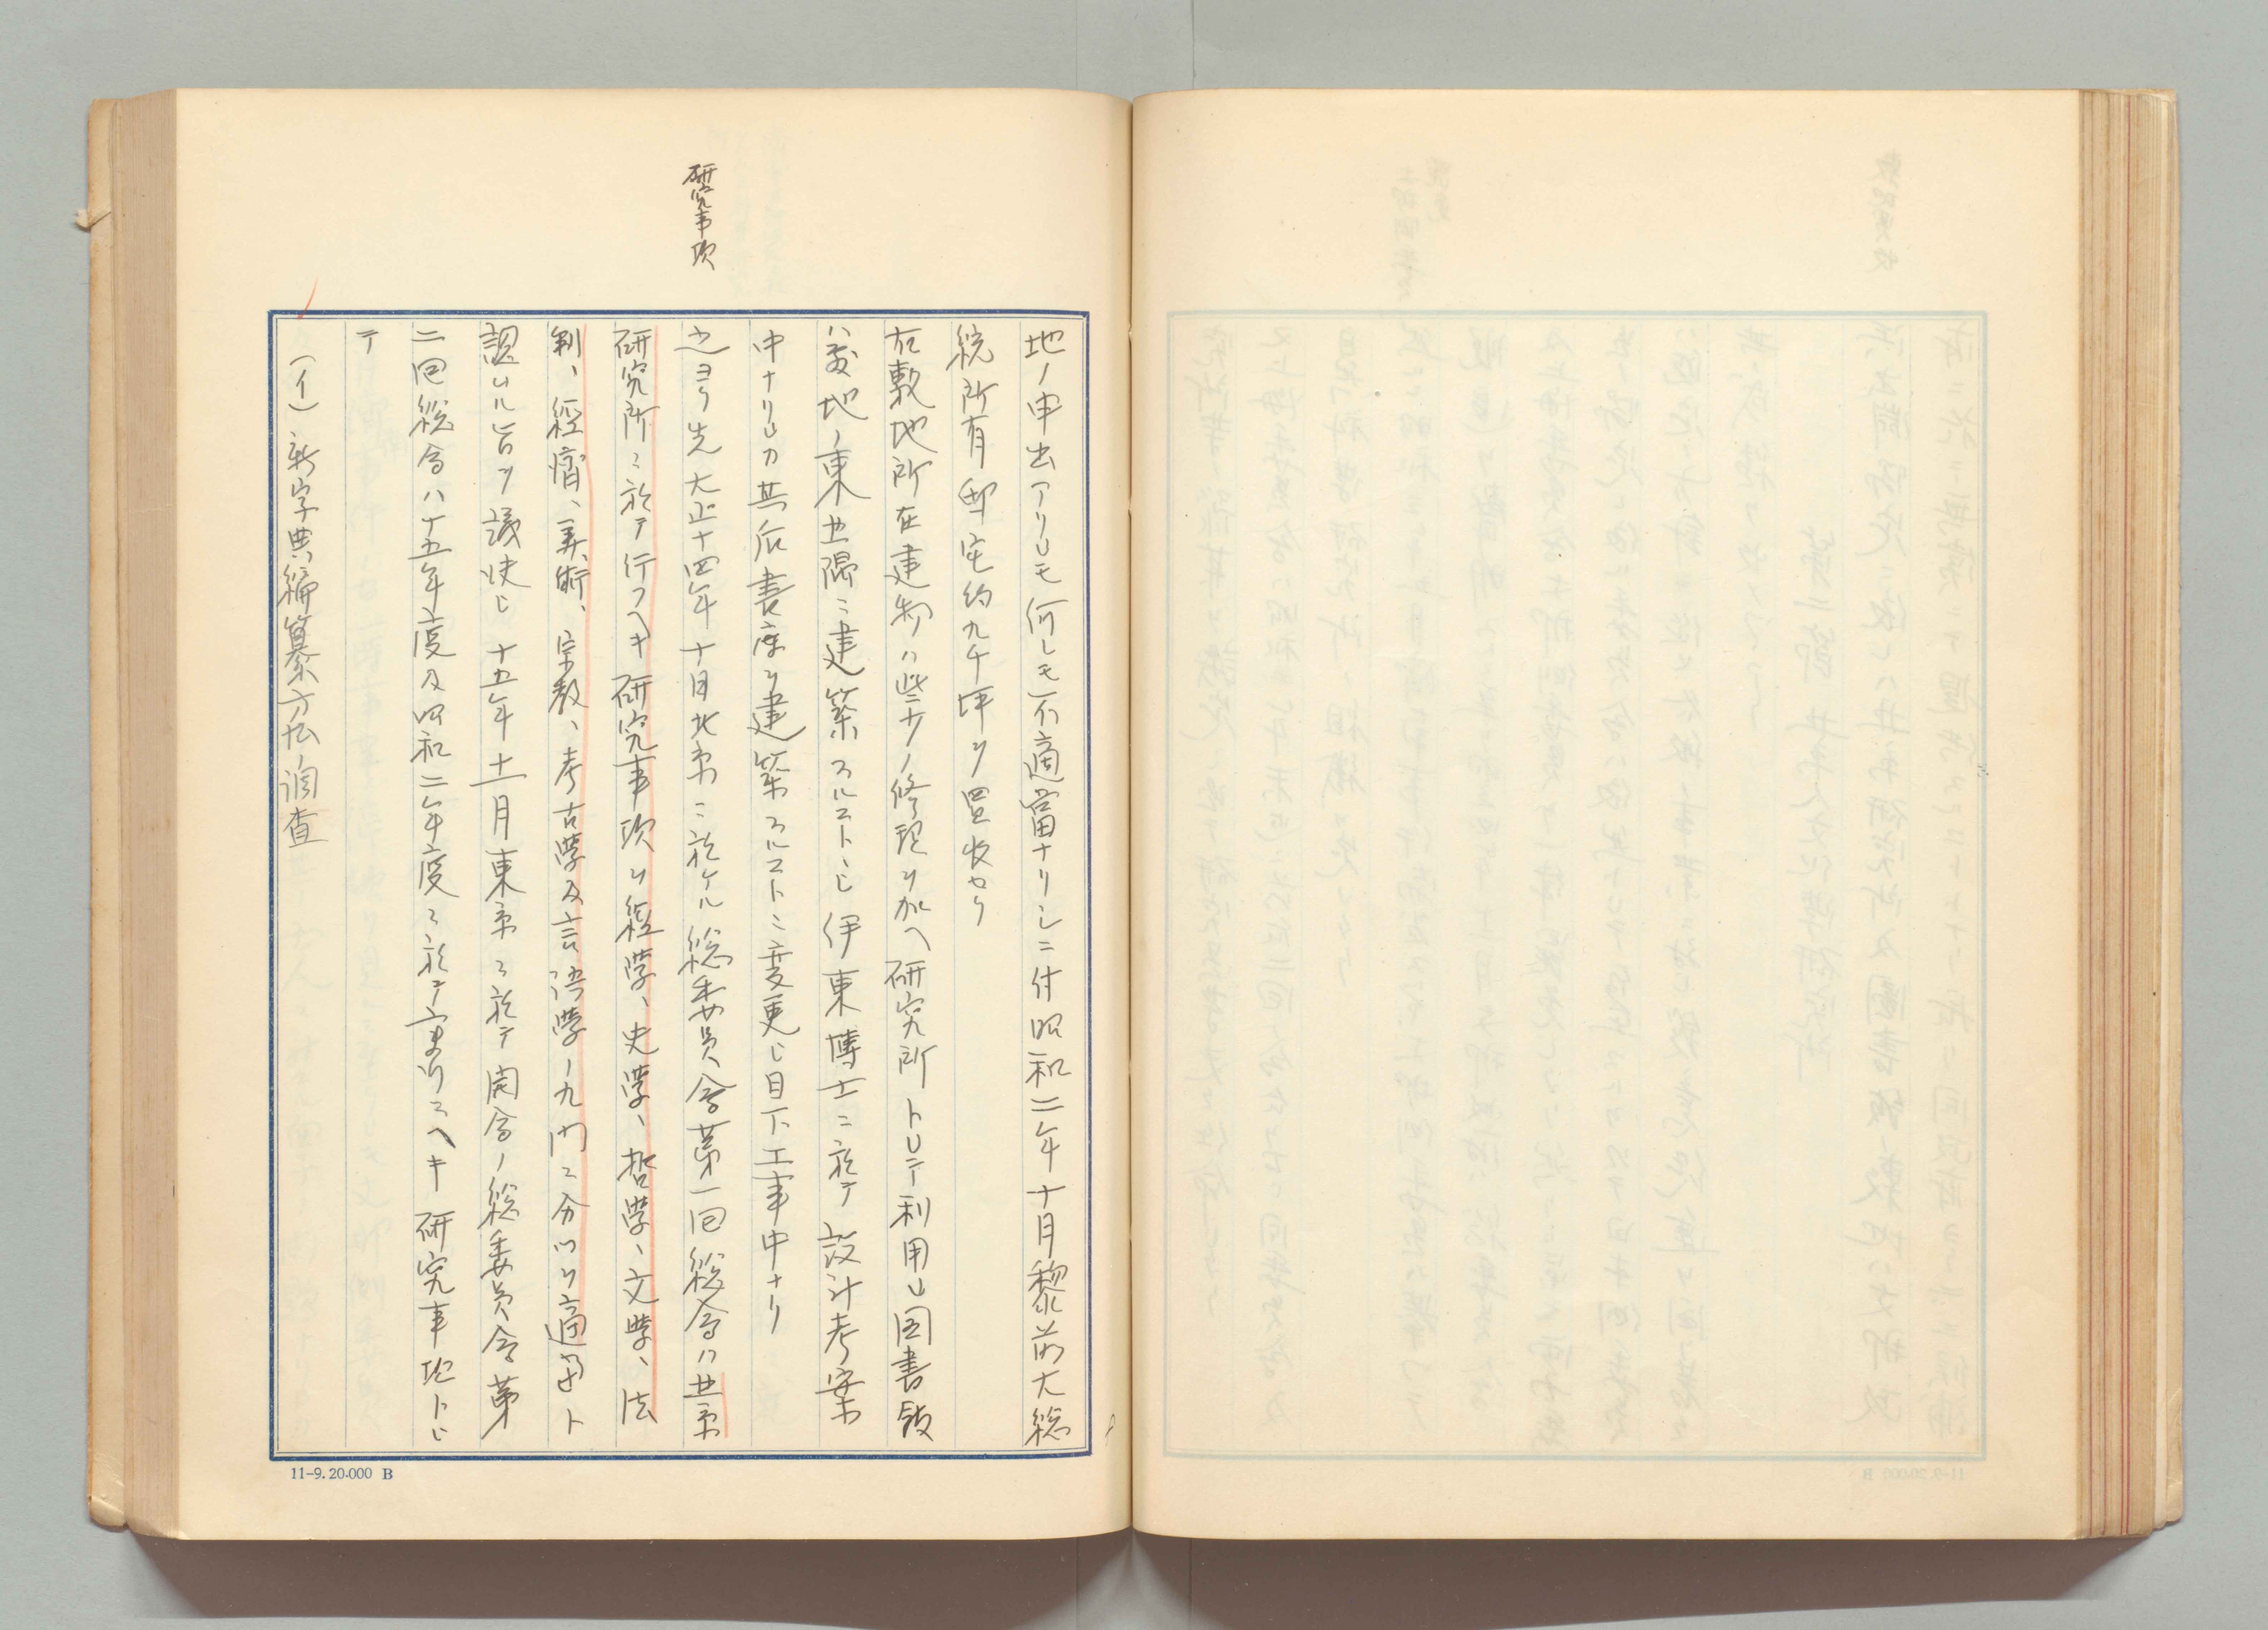 研究事項
地ノ申出アリシモ何レモ不適當ナリシニ付昭和二年十月黎前大総
統所有邸宅約九千坪ヲ買收セリ
右敷地所在建物ハ些少ノ修理ヲ加ヘ研究所トシテ利用シ図書館
ハ敷地ノ東北隅ニ建築スルコトトシ伊東博士ニ於テ設計考案
中ナリシカ其后書庫ヲ建築スルコトニ変更シ目下工事中ナリ
之ヨリ先大正十四年十月北京ニ於ケル総委員会第一回総会ハ北京
研究所ニ於テ行フヘキ研究事項ヲ経學、史學、哲學、文學、法
制、経濟、美術、宗教、考古學及言語學ノ九門ニ分ツヲ適當ト
認ムル旨ヲ議決シ十五年十一月東京ニ於テ開会ノ総委員会第
二回総会ハ十五年度及昭和二年度ニ於テ實行スヘキ研究事項トシ
テ
(イ) 新字典編纂方法ノ調査
11-9. 20.000 B